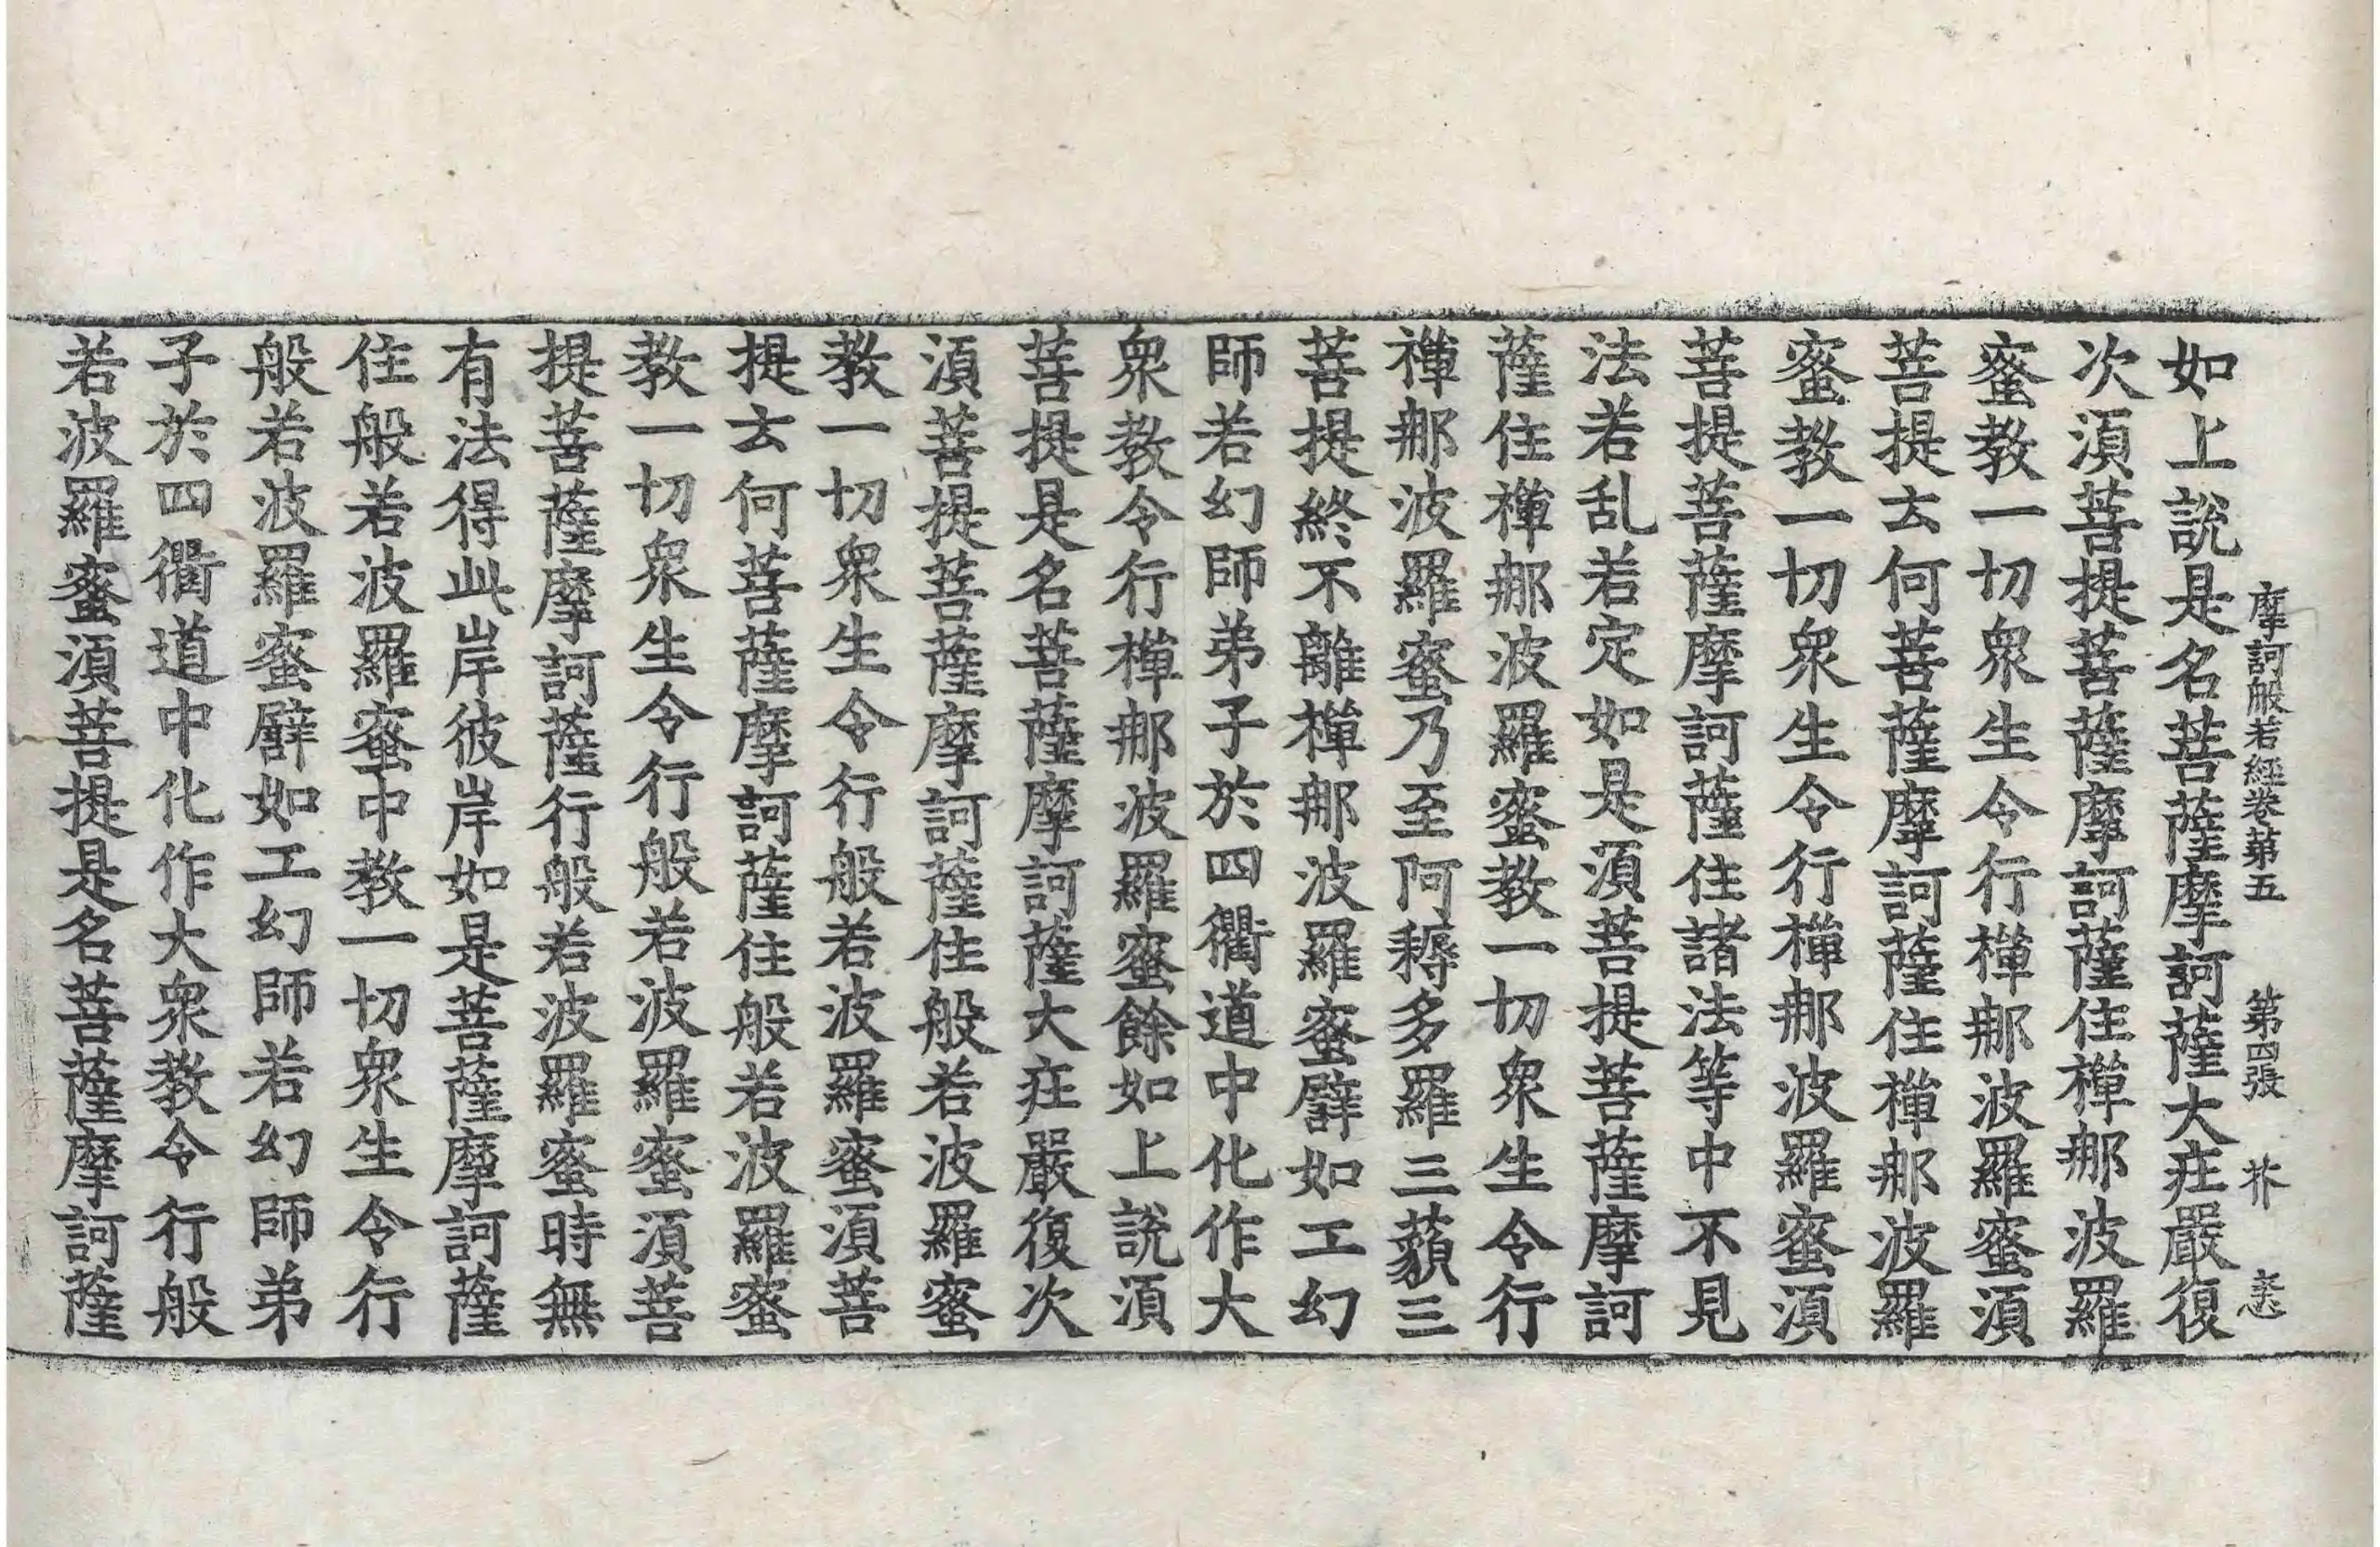 摩訶般若經卷第五 第四張 芥
如上說是名菩薩摩訶薩大庄嚴復
次湏菩提菩薩摩訶薩住禪那波羅
蜜教一切衆生令行禪那波羅蜜湏
菩提云何菩薩摩訶薩住禪那波羅
蜜教一切衆生令行禪那波羅蜜湏
菩提菩薩摩訶薩住諸法等中不見
法若乱若定如是湏菩提菩薩摩訶
薩住禪那波羅蜜教一切衆生令行
禪那波羅蜜乃至阿耨多羅三藐三
菩提終不離禪那波羅蜜譬如工幻
師若幻師弟子於四衢道中化作大
衆教令行禪那波羅蜜餘如上說湏
菩提是名菩薩摩訶薩大庄嚴復次
湏菩提菩薩摩訶薩住般若波羅蜜
教一切衆生令行般若波羅蜜湏菩
提云何菩薩摩訶薩住般若波羅蜜
教一切衆生令行般若波羅蜜湏菩
提菩薩摩訶薩行般若波羅蜜時無
有法得此岸彼岸如是菩薩摩訶薩
住般若波羅蜜中教一切衆生令行
般若波羅蜜譬如工幻師若幻師弟
子於四衢道中化作大衆教令行般
若波羅蜜湏菩提是名菩薩摩訶薩